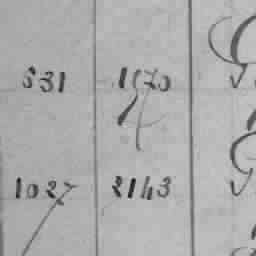 531 1170
4
1027 2143